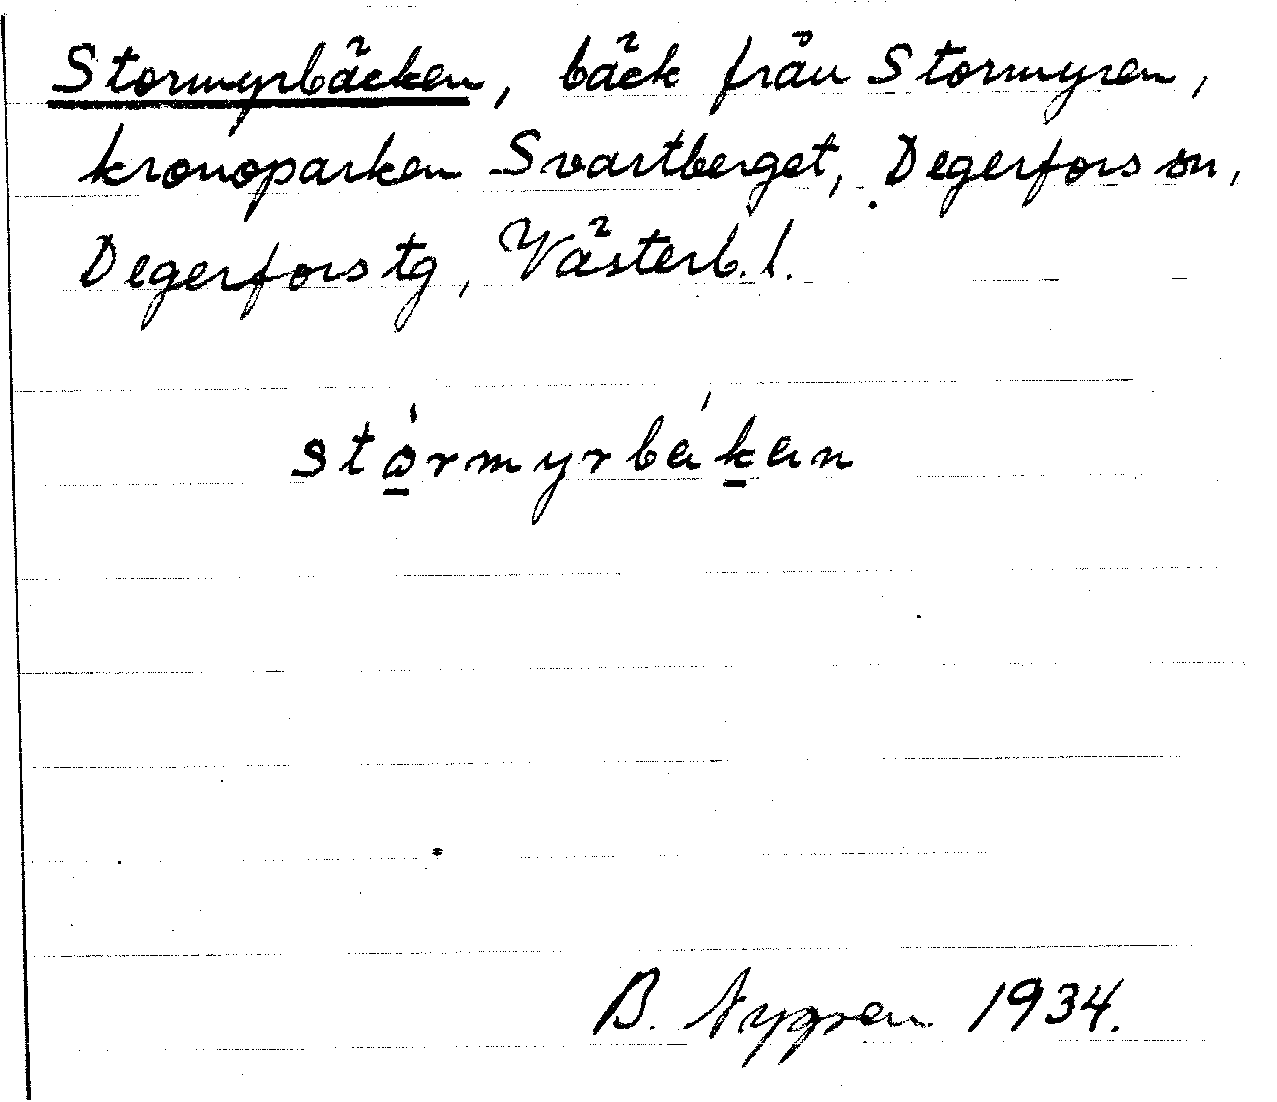 Stormyrbäcken, bäck från Stormyren,
kronoparken Svartberget, Degerfors sn,
Degerfors tg, Västerb. l.
stò̱rmyrbéḵen
B. Nygren 1934.